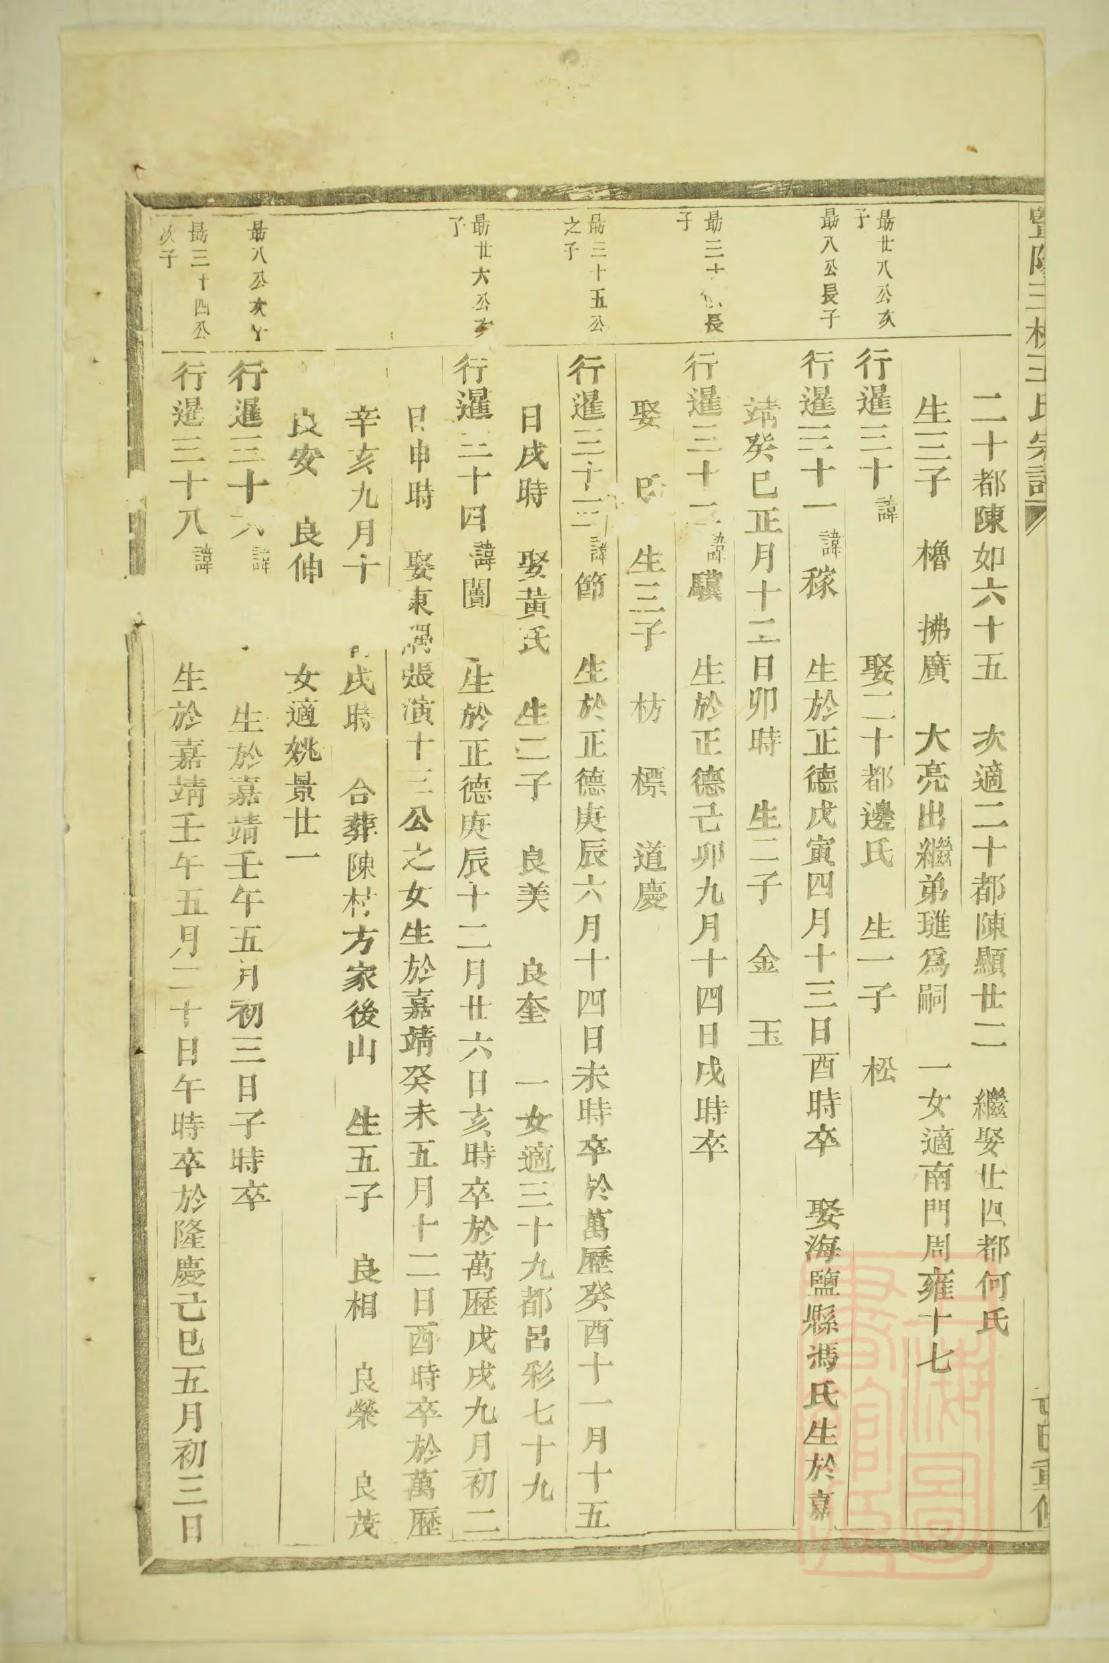 二十都陳如六十五　次適二十都陳顯廿二　繼娶廿四都何氏
生三子　櫓　拂廣　大亮出繼弟璡爲嗣　一女適南門周雍十七
最廿八公亥
子
行暹三十諱　娶二十都邊氏　生一子　松
最八公長子
行暹三十一諱稼　生於正德戊寅四月十三日酉時卒　娶海鹽縣馮氏生於嘉
靖癸巳正月十二日卯時　生二子　金　玉
最三十　長
子
行暹三十二諱驥　生於正德己卯九月十四日戌時卒
娶　氏　生三子　枋　標　道慶
最三十五公
之子
行暹三十三諱節　生於正德庚辰六月十四日未時卒於萬歷癸酉十一月十五
日戌時　娶黄氏　生二子　良美　良奎　一女適三十九都呂彩七十九
最廿六公亥
子
行暹三十四諱闓　生於正德庚辰十二月廿六日亥時卒於萬歷戊戌九月初二
日申時　娶東隅張演十三公之女生於嘉靖癸未五月十二日酉時卒於萬歷
辛亥九月十　戌時　合葬陳村方家後山　生五子　良相　良榮　良茂
良安　良伸　女適姚景廿一
最八公次子
行暹三十六諱　生於嘉靖壬午五月初三日子時卒
最三十四公
次子
行暹三十八諱　生於嘉靖壬午五月二十日午時卒於隆慶己巳五月初三日